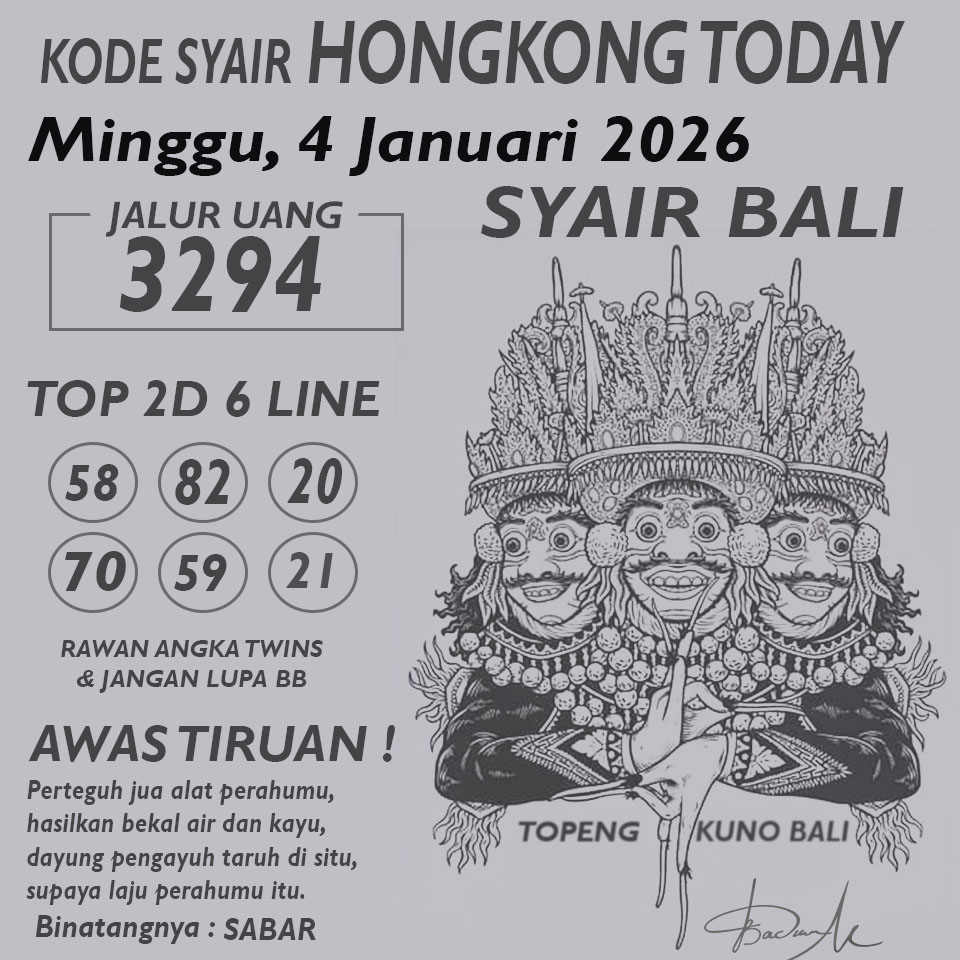 KODE SYAIR HONGKONG TODAY
Minggu, 4 Januari 2026
SYAIR BALI
JALUR UANG
3294
TOP 2D 6 LINE
58 82 20
70 59 21
RAWAN ANGKA TWINS
& JANGAN LUPA BB
AWAS TIRUAN !
Perteguh jua alat perahumu,
hasilkan bekal air dan kayu,
dayung pengayuh taruh di situ,
supaya laju perahumu itu.
Binatangnya : SABAR
TOPENG KUNO BALI